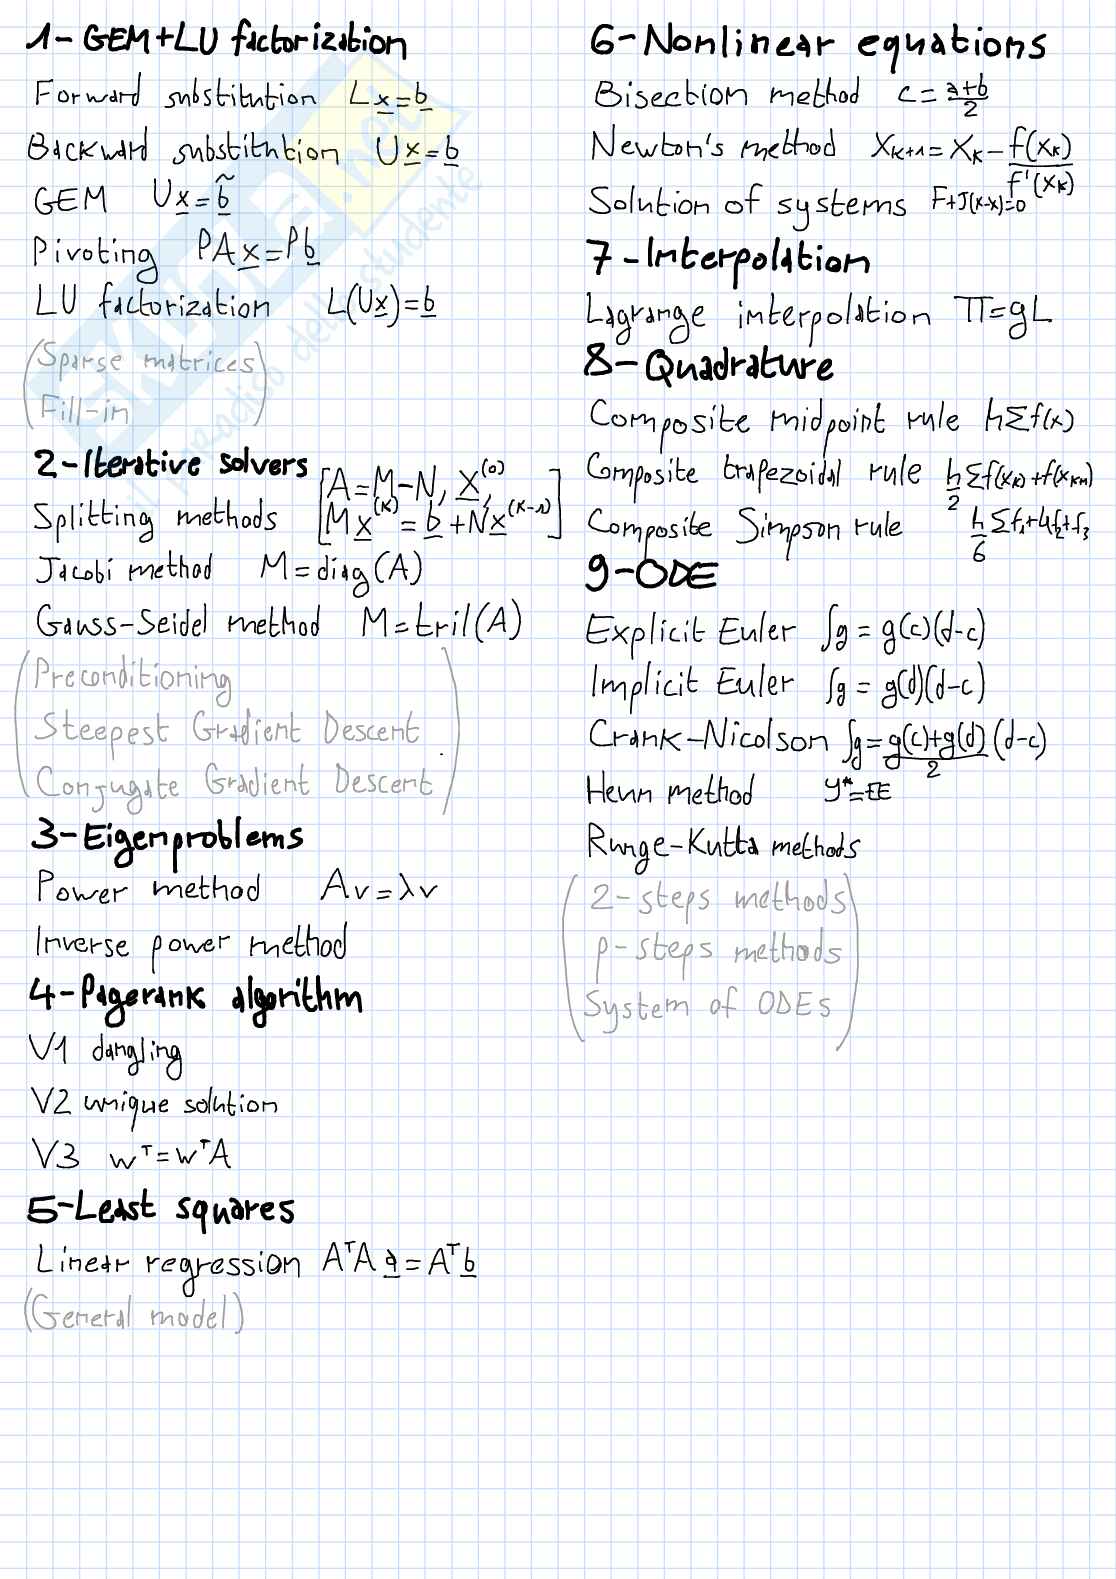 1- GEM+LU factorization
Forward substitution Lx=b
Backward substitution Ux=b
GEM Ux=b̃
Pivoting PAx=Pb
LU factorization L(Ux)=b
(Sparse matrices
Fill-in)
2-Iterative solvers
[A=M-N, x^(0)
Splitting methods Mx^(k)=b+Nx^(k-1)]
Jacobi method M=diag(A)
Gauss-Seidel method M=tril(A)
(Preconditioning
Steepest Gradient Descent
Conjugate Gradient Descent)
3-Eigenproblems
Power method Av=λv
Inverse power method
4-Pagerank algorithm
V1 dangling
V2 unique solution
V3 w^T=w^TA
5-Least squares
Linear regression A^TAa=A^Tb
(General model)
6-Nonlinear equations
Bisection method c=(a+b)/2
Newton's method X_{k+1}=X_k-f(X_k)/f'(X_k)
Solution of systems F+J(x-x)=0
7-Interpolation
Lagrange interpolation Π=gL
8-Quadrature
Composite midpoint rule hΣf(x)
Composite trapezoidal rule h/2 Σf(x_k)+f(x_{k+1})
Composite Simpson rule h/6 Σf₁+4f₂+f₃
9-ODE
Explicit Euler ∫g=g(c)(d-c)
Implicit Euler ∫g=g(d)(d-c)
Crank-Nicolson ∫g=(g(c)+g(d))/2 (d-c)
Heun method y*=EE
Runge-Kutta methods
(2-steps methods
p-steps methods
System of ODEs)
SKUOLA.net
il paradiso dello studente